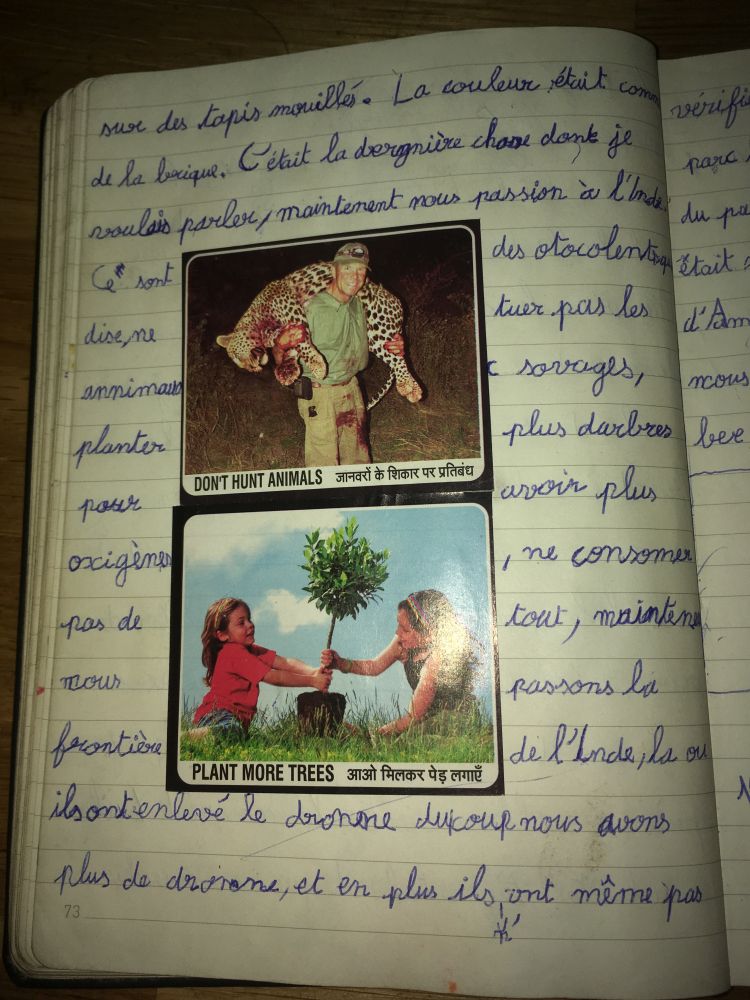 sur des tapis mouillés. La couleur était comm
de la brique. C'était la dergnière chose dont je
voulais parler, maintenent nous passion à l'Inde.
Ce sont des otocolent qu
dise, ne tuer pas les
annimaux sovages,
planter plus darbres
pour avoir plus
oxigènes, ne consomer
pas de tout, maintene
nous passons la
frontière de l'Inde, la ou
ils ont enlevé le dronne du coup nous avons
plus de dronne, et en plus ils ont même pas
n'
73
DON'T HUNT ANIMALS जानवरों के शिकार पर प्रतिबंध
PLANT MORE TREES आओ मिलकर पेड़ लगाएँ
vérifi
parc
du pa
était
d'Am
nous
bee